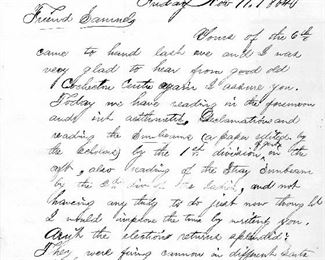 Friday Nov 11, 1864
Friend Samuel,
Yours of the 6th
came to hand last eve and I was
very glad to hear from good old
Cochecton Centre again I assure you.
Today we have reading in the forenoon
and arithmetic, Declamations and
reading the Sunbeam (a paper edited by
the scholars) by the 1st division, in the
aft, also reading of the Stray Sunbeam
by the 2nd div, and not
having any thing to do just now thought
I would improve the time by writing you.
the election returns splendid?
They were firing cannon in different